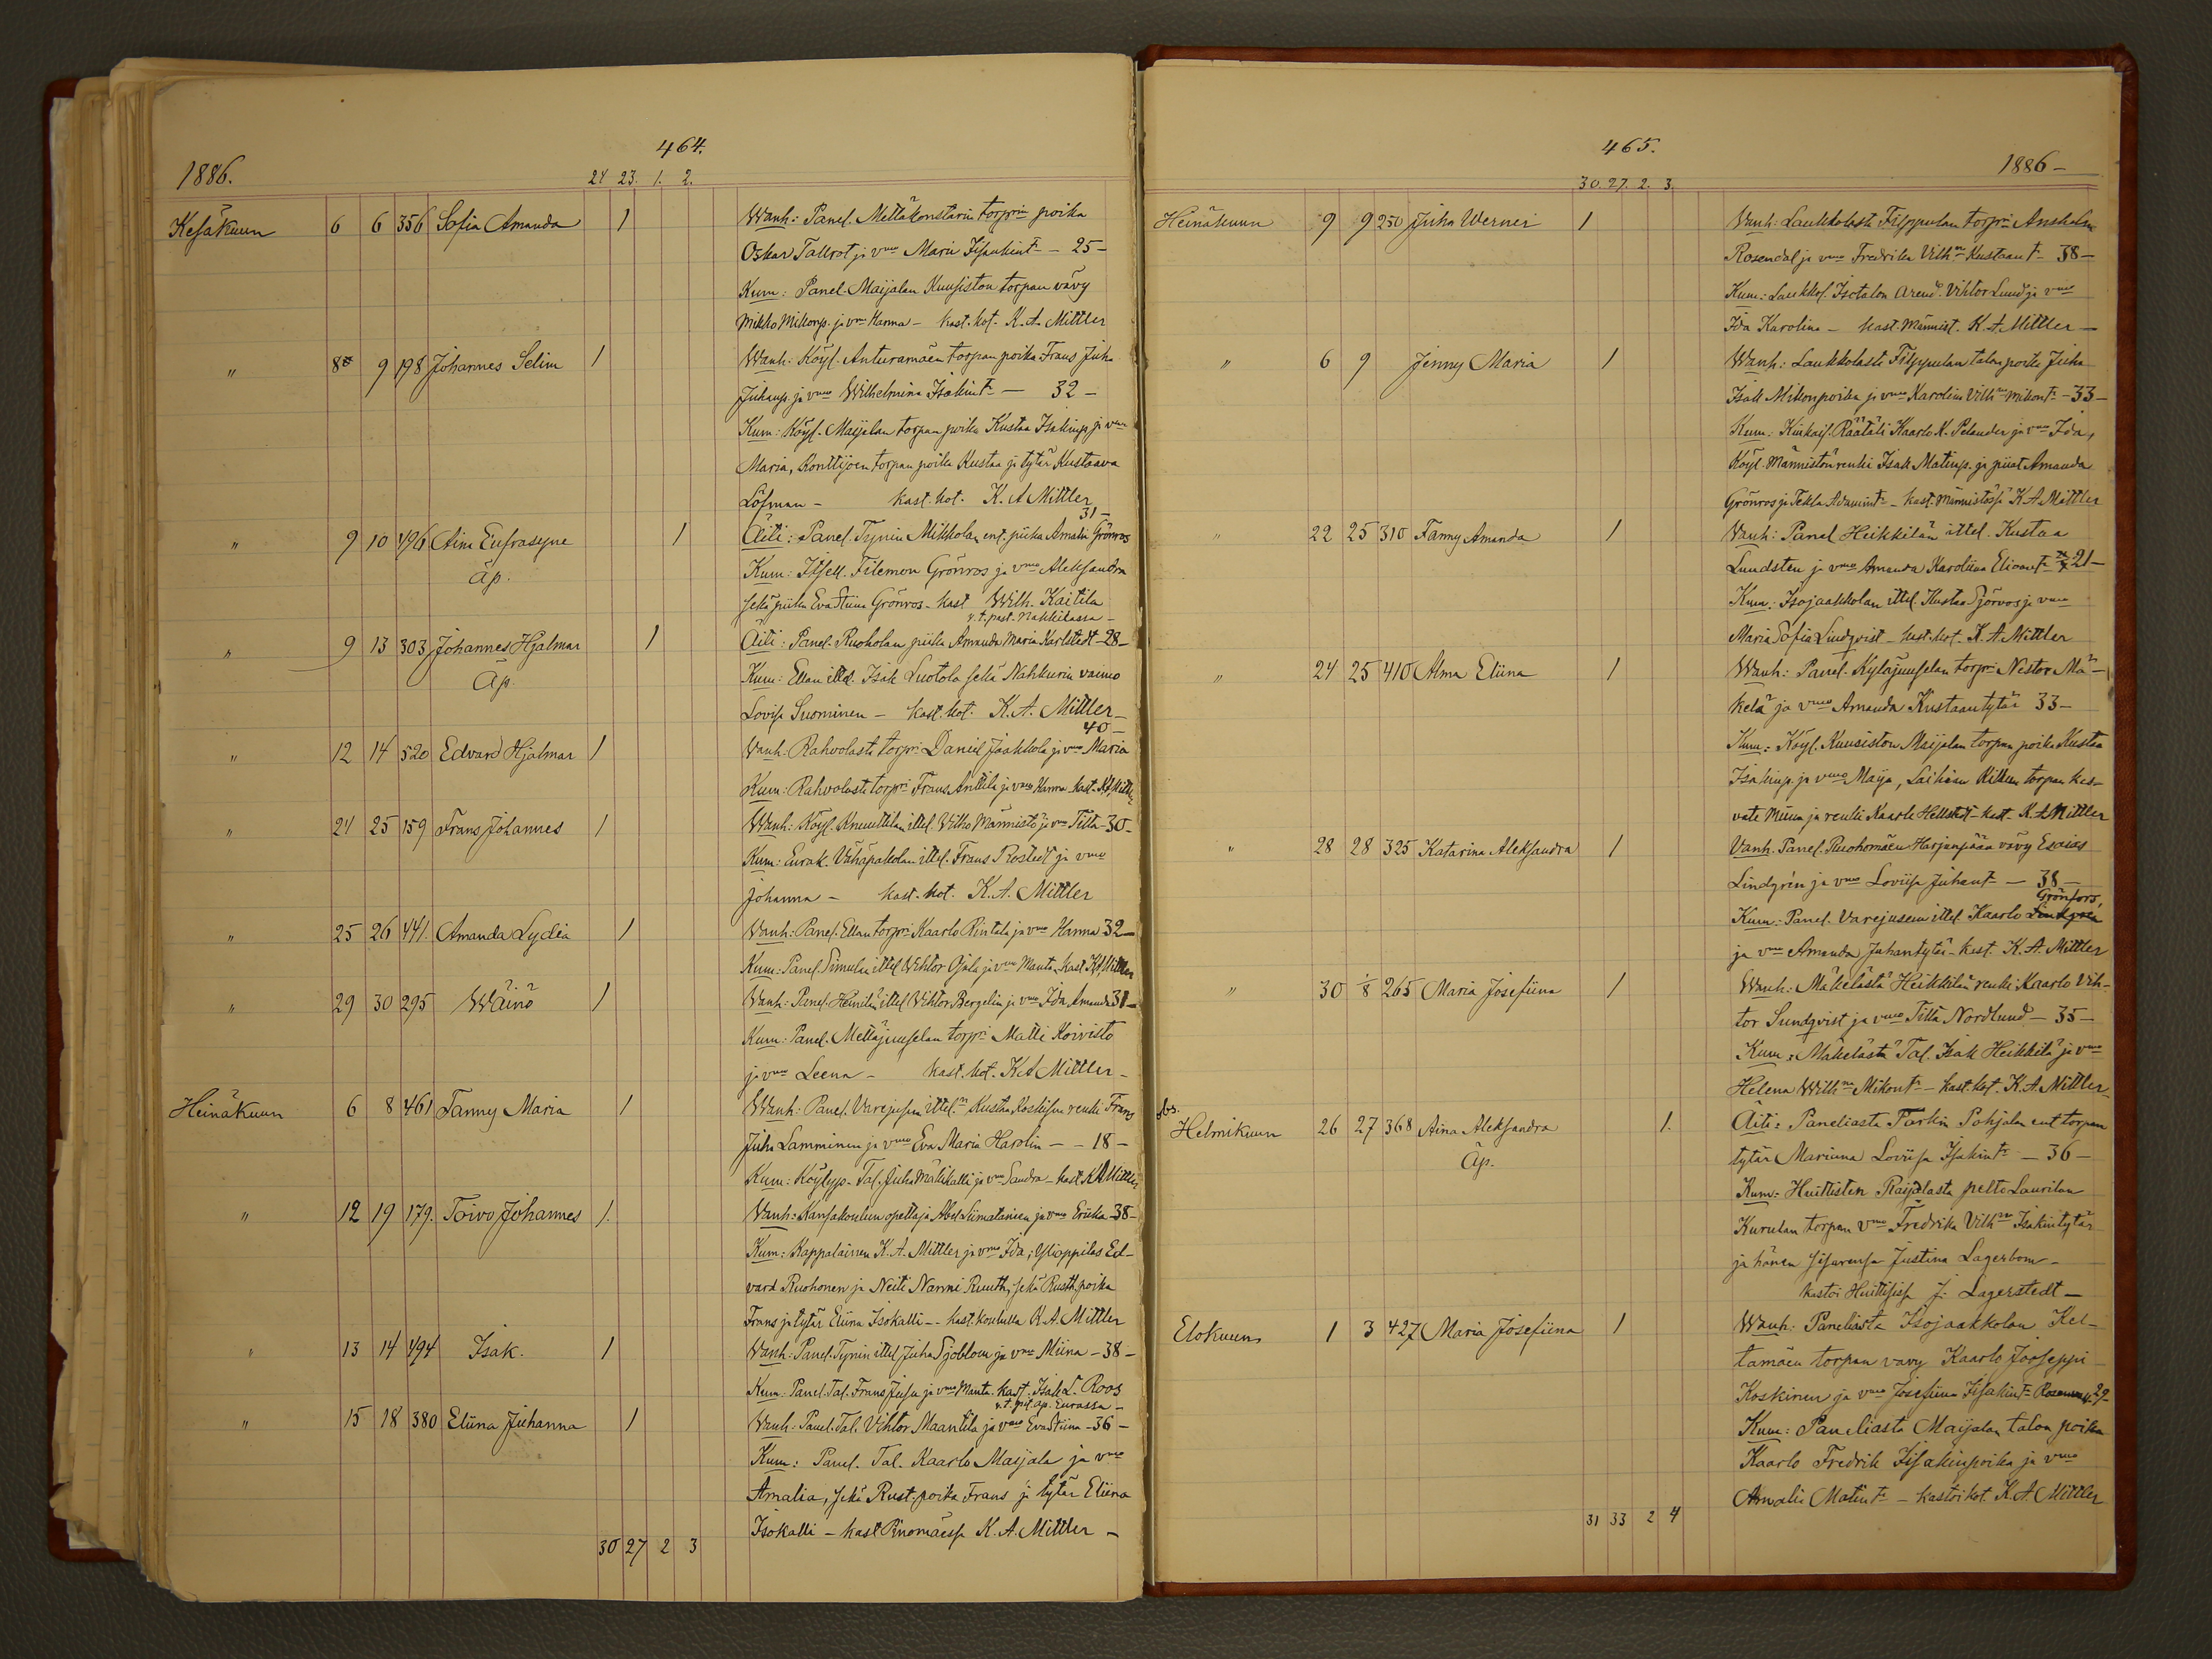 464.
1886.
24 23. 1. 2.
Kesäkuun 6 6 356 Sofia Amanda 1 Wanh: Panel. Mettäkonstarin torpri poika
Oskar Tallrot ja vmo Maria Iisakint - 25 -
Kum: Panel. Maijalan Kuusiston torpan vävy
Mikko Mikonp. ja vmo Hanna - kast. kot. K. A. Mittler
" 8 9 198 Johannes Selim 1 Wanh: Köyl. Anturamäen torpan poika Frans Juha
Juhanp. ja vmo Wilhelmina Isakint - 32 -
Kum: Köyl. Maijalan torpan poika Kustaa Isakinp. ja vmo
Maria, Konttijoen torpan poika Kustaa ja tytär Kustaava
Löfman - kast. kot. K. A Mittler
31 -
" 9 10 496 Aina Eufrasyne 1 Äiti: Panel. Tynin Mikkolan ent. piika Amalia Grönros
Äp. Kum: Itsell. Filemon Grönros ja vmo Aleksandra
sekä piika Eva Stiina Grönros - kast Wilh. Kaitila
v. t. past. Nakkilassa -
" 9 13 303 Johannes Hjalmar 1 Äiti: Panel. Ruoholan piika Amanda Maria Karlstedt - 28 -
Äp. Kum: Ellan ittel. Isak Luotola sekä Nahkurin vaimo
Lovisa Suominen - kast. kot. K. A. Mittler -
40 -
" 12 14 520 Edvard Hjalmar 1 Wanh: Rahvolasta torpri Daniel Jaakkola ja vmo Maria
Kum: Rahvolasta torpri Frans Anttila ja vmo Hanna kast. K. A. Mittler
" 24 25 159 Frans Johannes 1 Wanh: Köyl. Knuuttilan ittel. Vilho Männistö ja vmo Tilta - 30 -
Kum: Eurak. Vähäpakolan ittel. Frans Rostedt ja vmo
Johanna - kast. kot. K. A. Mittler
" 25 26 441. Amanda Lydia 1 Wanh: Panel. Ellan torpri Kaarlo Rintala ja vmo Hanna 32 -
Kum: Panel. Simulan ittel Vihtor Ojala ja vmo Manta. kast. K. A. Mittler
" 29 30 295 Wäinö 1 Wanh: Panel. Heinilän ittel Vihtor Bergelin ja vmo Ida Amanda 31 -
Kum: Panel. Mettäjuuselan torpri Matti Koivisto
ja vmo Leena - kast. kot. K A Mittler -
Heinäkuun 6 8 461 Fanny Maria 1 Wanh: Panel. Varejusen ittel. Kustaa Koskisen renki Frans
Juha Lamminen ja vmo Eva Maria Harolin - - 18 -
Kum: Köylyp. Tal. Juha Mälikalli ja vmo Sandra - kast K A Mittler
" 12 19 179. Toivo Johannes 1. Wanh: Kansakoulun opettaja Abel Liimatainen ja vmo Eriika 38 -
Kum: Kappalainen K. A. Mittler ja vmo Ida; Ylioppilas Ed-
vard Ruohonen ja Neiti Nanni Ruuth, sekä Rusth. poika
Frans ja tytär Eliina Isokalli - - kast. koululla K. A. Mittler
" 13 14 494 Isak. 1 Wanh: Panel. Tynin ittel Juha Sjöblom ja vmo Miina - 38 -
Kum: Panel. Tal. Frans Juusu ja vmo Manta. kast. Isak L. Roos
v. t. pit. ap. Eurassa -
" 15 18 380 Eliina Juhanna 1 Wanh: Panel. Tal. Vihtor Maantila ja vmo Eva Stiina - 36 -
Kum: Panel. Tal. Kaarlo Maijala ja vmo
Amalia, sekä Rust. poika Frans ja tytär Eliina
Isokalli - kast Rinomäessä K. A. Mittler -
30 27 2 3
465.
1886 -
30. 27. 2. 3.
Heinäkuun 9 9 250 Juha Werner 1 Vanh: Laukkolasta Filppulan torpri Anshelm
Rosendal ja vmo Fredrika Vilhna Kustaant 38 -
Kum: Laukkol. Isotalon arend. Vihtor Lund ja vmo
Ida Karolina - kast. Männist. K. A. Mittler -
" 6 9 Jenny Maria 1 Wanh: Laukkolasta Filppulan talon poika Juha
Isak Mikonpoika ja vmo Karolina Vilhna Mikont - 33 -
Kum: Kiukais. Räätäli Kaarlo K. Pelander ja vmo Ida,
Köyl. Männistön renki Isak Matinp. ja piiat Amanda
Grönros ja Tekla Adamint - kast. Männistössä K. A. Mittler
" 22 25 310 Fanny Amanda 1 Vanh: Panel Heikkilän ittel. Kustaa
Lundsten ja vmo Amanda Karoliina Eliaant 21 -
Kum: Isojaakkolan ittel. Kustaa Sjöros ja vmo
Maria Sofia Lindqvist - kast. kot. K. A. Mittler
" 24 25 410 Alma Eliina 1 Wanh: Panel. Kyläjuuselan torpri Nestor Mä-
kelä ja vmo Amanda Kustaantytär 33 -
Kum: Köyl. Kuusiston Maijalan torpan poika Kustaa
Isakinp. ja vmo Maija, torpan kas-
vate Miina ja renki Kaarle Hellstedt - kast. K. A Mittler
" 28 28 325 Katarina Aleksandra 1 Vanh. Panel. Ruohomäen Harjunpään vävy Esaias
Lindgrén ja vmo Loviisa Juhant - 38 -
Grönfors,
Kum: Panel. Varejusen ittel. Kaarlo Lindgren
ja vmo Amanda Juhantytär - kast. K. A. Mittler
" 30 1/8 265 Maria Josefiina 1 Wanh: Mäkelästä Heikkilän renki Kaarlo Vih-
tor Sundqvist ja vmo Tilta Nordlund - 35 -
Kum: Mäkelästä Tal. Isak Heikkilä ja vmo
Helena Wilhna Mikont - kast. kot. K. A. Mittler -
obs.
Helmikuun 26 27 368 Aina Aleksandra 1. Äiti: Paneliasta Tarkin Pohjalan ent torpan
Äp. tytär Mariana Loviisa Isakint - 36 -
Kum: Huittisten Raijalasta pelto Laurilan
Kurulan torpan vmo Fredrika Vilhna Isakintytär
ja hänen sisarensa Justina Lagerbom -
kastoi Huittisissa J. Lagerstedt -
Elokuun 1 3 427 Maria Josefiina 1 Wanh: Paneliasta Isojaakkolan Kel-
tamäen torpan vävy Kaarlo Jooseppi
Koskinen ja vmo Josefiina Iisakint 29 -
Kum: Paneliasta Maijalan talon poika
Kaarlo Fredrik Iisakinpoika ja vmo
Amalia Matint - kastoi kot. K. A. Mittler
31 33 2 4